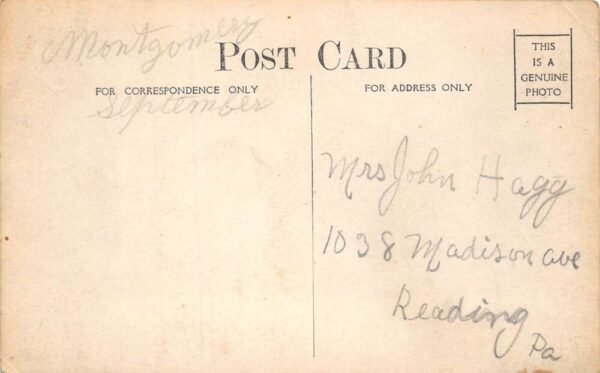 Montgomery
POST CARD
FOR CORRESPONDENCE ONLY
September
FOR ADDRESS ONLY
THIS
IS A
GENUINE
PHOTO
Mrs John Hagg
1038 Madison ave
Reading
Pa